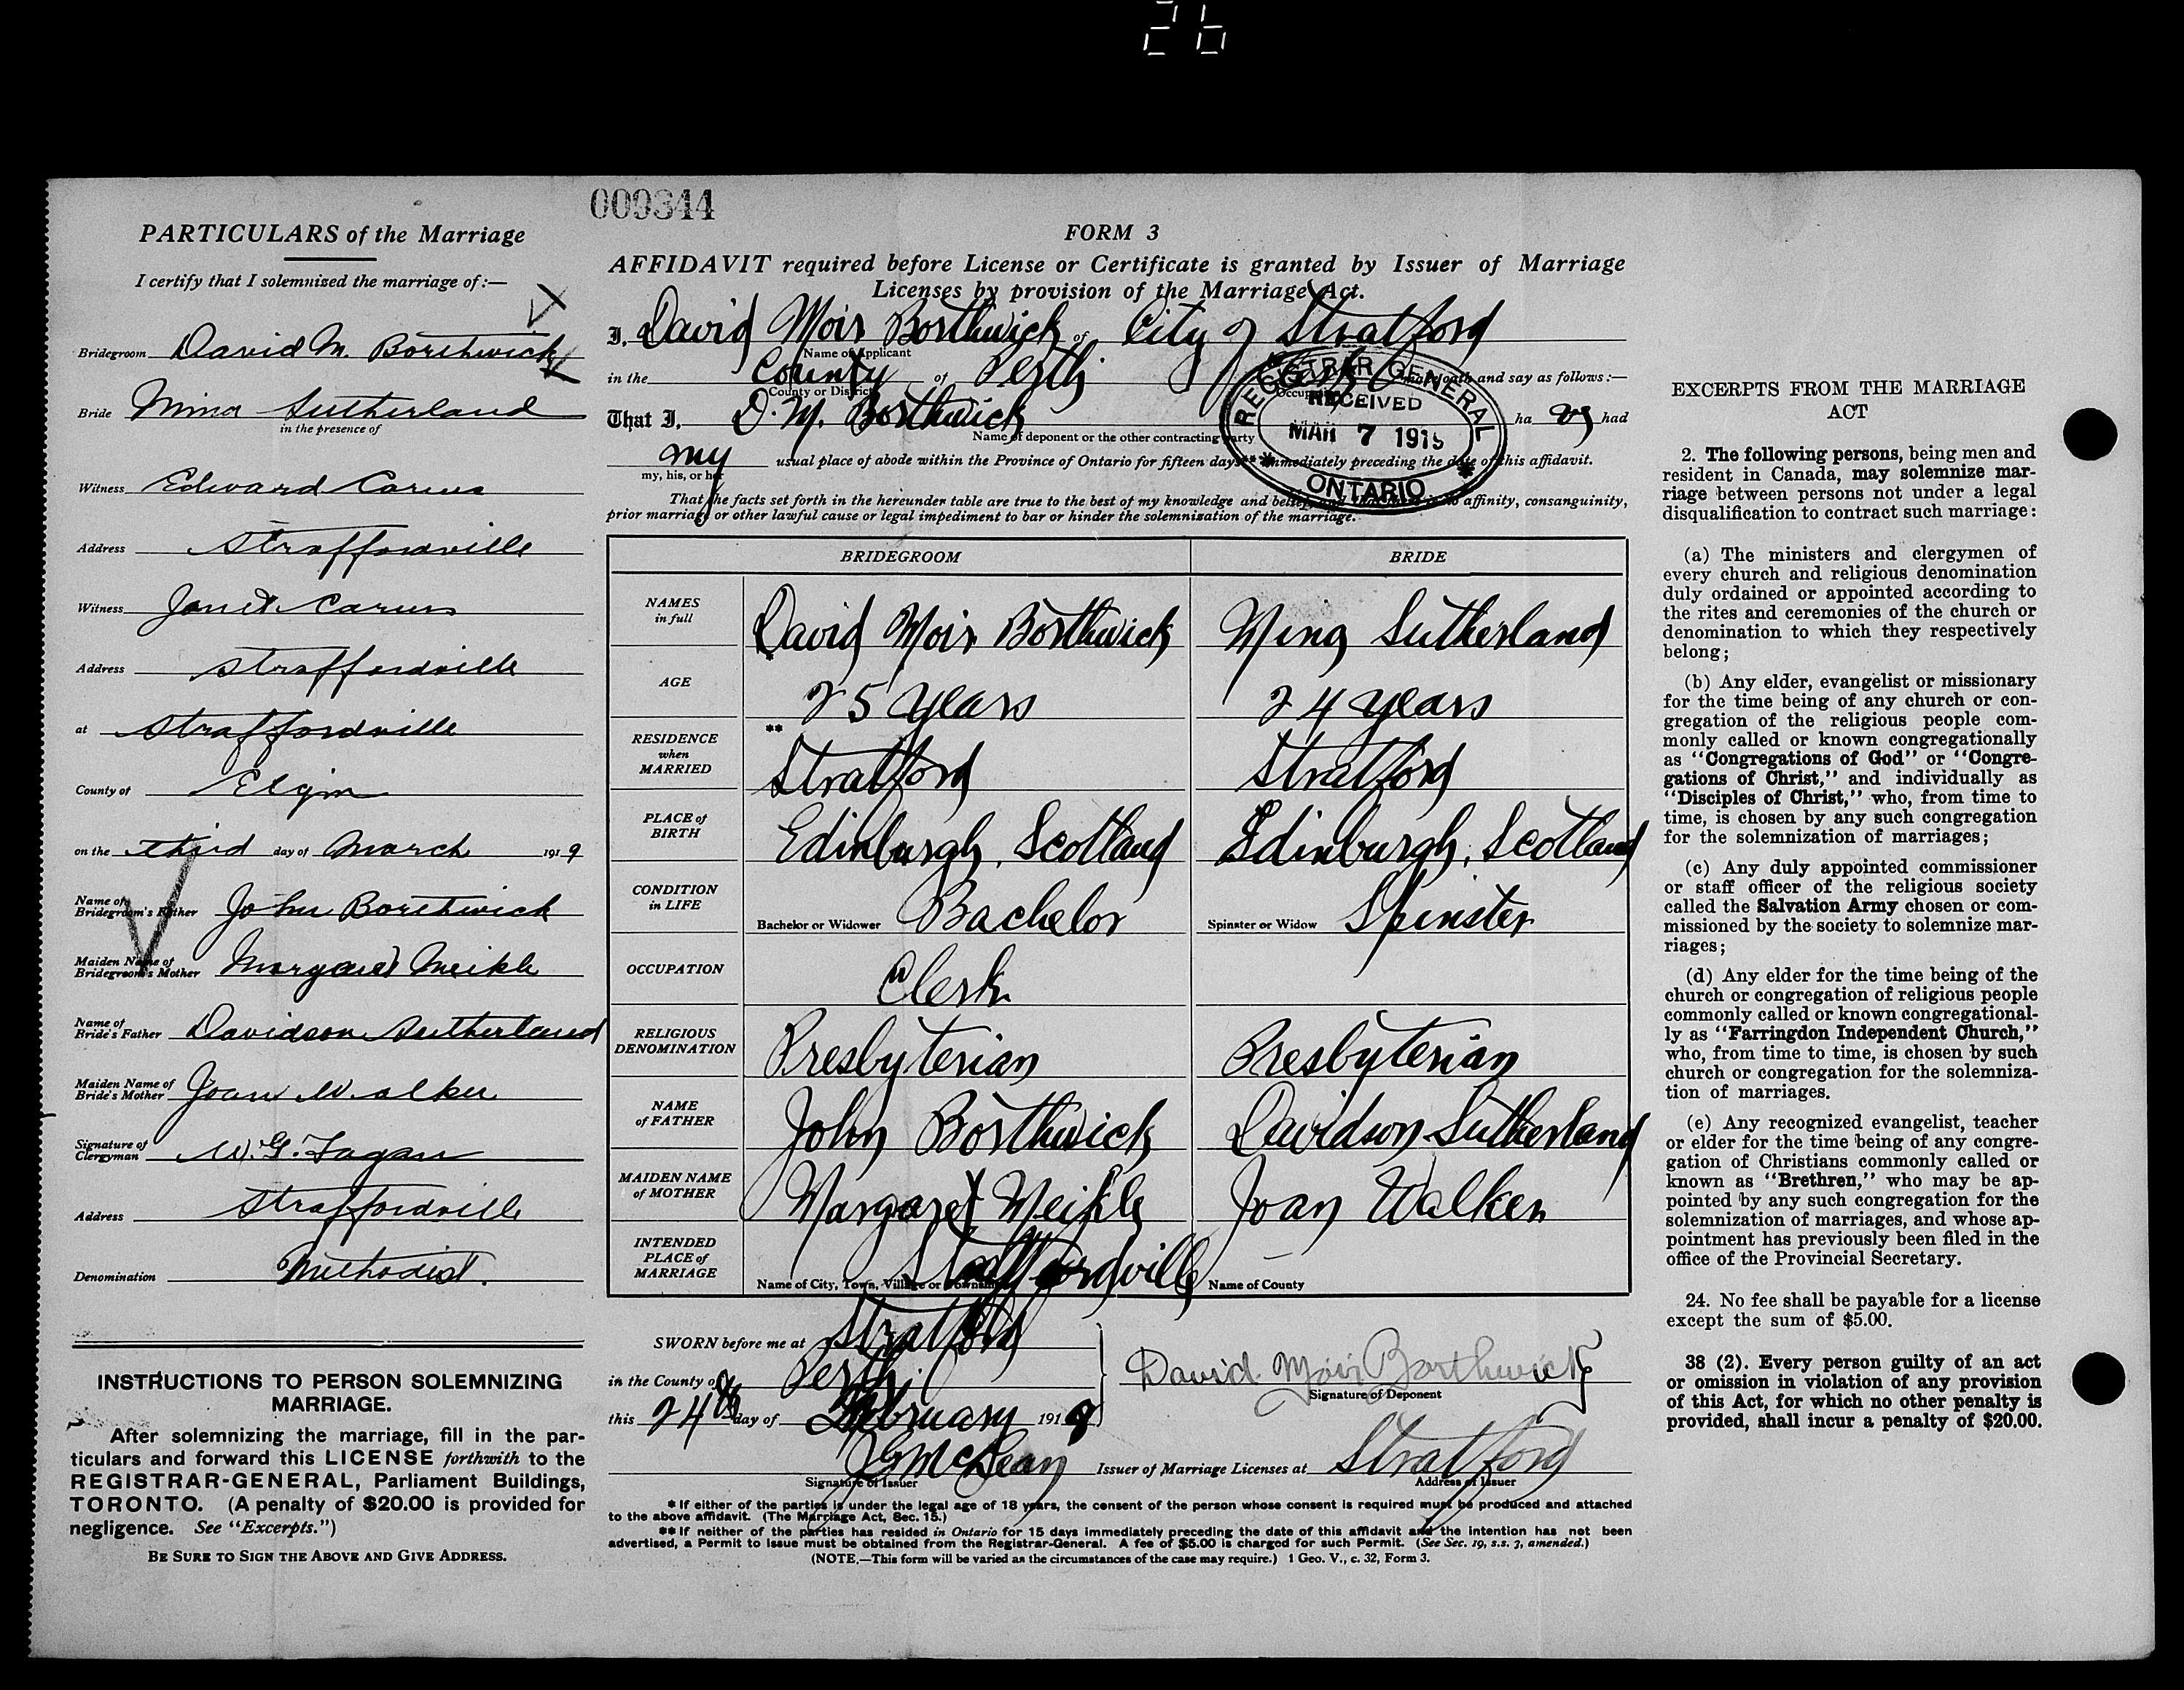 26
009344
PARTICULARS of the Marriage
I certify that I solemnized the marriage of:—
Bridegroom David M. Borthwick
Bride Mina Sutherland
in the presence of
Witness Edward Carus
Address Straffordville
Witness Janet Carus
Address Straffordville
at Straffordville
County of Elgin
on the third day of March 1919
Name of Bridegroom's Father John Borthwick
Maiden Name of Bridegroom's Mother Margaret Meikle
Name of Bride's Father Davidson Sutherland
Maiden Name of Bride's Mother Joan Walker
Signature of Clergyman W. G. Fagan
Address Straffordville
Denomination Methodist.
INSTRUCTIONS TO PERSON SOLEMNIZING
MARRIAGE.
After solemnizing the marriage, fill in the par-
ticulars and forward this LICENSE forthwith to the
REGISTRAR-GENERAL, Parliament Buildings,
TORONTO. (A penalty of $20.00 is provided for
negligence. See "Excerpts.")
BE SURE TO SIGN THE ABOVE AND GIVE ADDRESS.
FORM 3
AFFIDAVIT required before License or Certificate is granted by Issuer of Marriage
Licenses by provision of the Marriage Act.
I, David Moir Borthwick of City of Stratford
Name of Applicant
in the County of Perth Clerk make oath and say as follows:—
County or District Occupation
That I, D. M. Borthwick ha ve had
Name of deponent or the other contracting party
my usual place of abode within the Province of Ontario for fifteen days** immediately preceding the date of this affidavit.
my, his, or her
That the facts set forth in the hereunder table are true to the best of my knowledge and belief, and that there is no affinity, consanguinity,
prior marriage or other lawful cause or legal impediment to bar or hinder the solemnization of the marriage.
REGISTRAR GENERAL
RECEIVED
MAR 7 1919
ONTARIO
BRIDEGROOM BRIDE
NAMES in full David Moir Borthwick Mina Sutherland
*
AGE 25 years 24 years
**
RESIDENCE when MARRIED Stratford Stratford
PLACE of BIRTH Edinburgh, Scotland Edinburgh, Scotland
CONDITION in LIFE Bachelor or Widower Bachelor Spinster or Widow Spinster
OCCUPATION Clerk
RELIGIOUS DENOMINATION Presbyterian Presbyterian
NAME of FATHER John Borthwick Davidson Sutherland
MAIDEN NAME of MOTHER Margaret Meikle Joan Walker
INTENDED PLACE of MARRIAGE Name of City, Town, Village or Township Straffordville Name of County —
SWORN before me at Stratford
in the County of Perth
this 24th day of February 1919
David Moir Borthwick
Signature of Deponent
McLean Issuer of Marriage Licenses at Stratford
Signature of Issuer Address of Issuer
* If either of the parties is under the legal age of 18 years, the consent of the person whose consent is required must be produced and attached
to the above affidavit. (The Marriage Act, Sec. 15.)
** If neither of the parties has resided in Ontario for 15 days immediately preceding the date of this affidavit and the intention has not been
advertised, a Permit to Issue must be obtained from the Registrar-General. A fee of $5.00 is charged for such Permit. (See Sec. 19, s.s. 3, amended.)
(NOTE.—This form will be varied as the circumstances of the case may require.) 1 Geo. V., c. 32, Form 3.
EXCERPTS FROM THE MARRIAGE
ACT
2. The following persons, being men and
resident in Canada, may solemnize mar-
riage between persons not under a legal
disqualification to contract such marriage:
(a) The ministers and clergymen of
every church and religious denomination
duly ordained or appointed according to
the rites and ceremonies of the church or
denomination to which they respectively
belong;
(b) Any elder, evangelist or missionary
for the time being of any church or con-
gregation of the religious people com-
monly called or known congregationally
as "Congregations of God" or "Congre-
gations of Christ," and individually as
"Disciples of Christ," who, from time to
time, is chosen by any such congregation
for the solemnization of marriages;
(c) Any duly appointed commissioner
or staff officer of the religious society
called the Salvation Army chosen or com-
missioned by the society to solemnize mar-
riages;
(d) Any elder for the time being of the
church or congregation of religious people
commonly called or known congregational-
ly as "Farringdon Independent Church,"
who, from time to time, is chosen by such
church or congregation for the solemniza-
tion of marriages.
(e) Any recognized evangelist, teacher
or elder for the time being of any congre-
gation of Christians commonly called or
known as "Brethren," who may be ap-
pointed by any such congregation for the
solemnization of marriages, and whose ap-
pointment has previously been filed in the
office of the Provincial Secretary.
24. No fee shall be payable for a license
except the sum of $5.00.
38 (2). Every person guilty of an act
or omission in violation of any provision
of this Act, for which no other penalty is
provided, shall incur a penalty of $20.00.